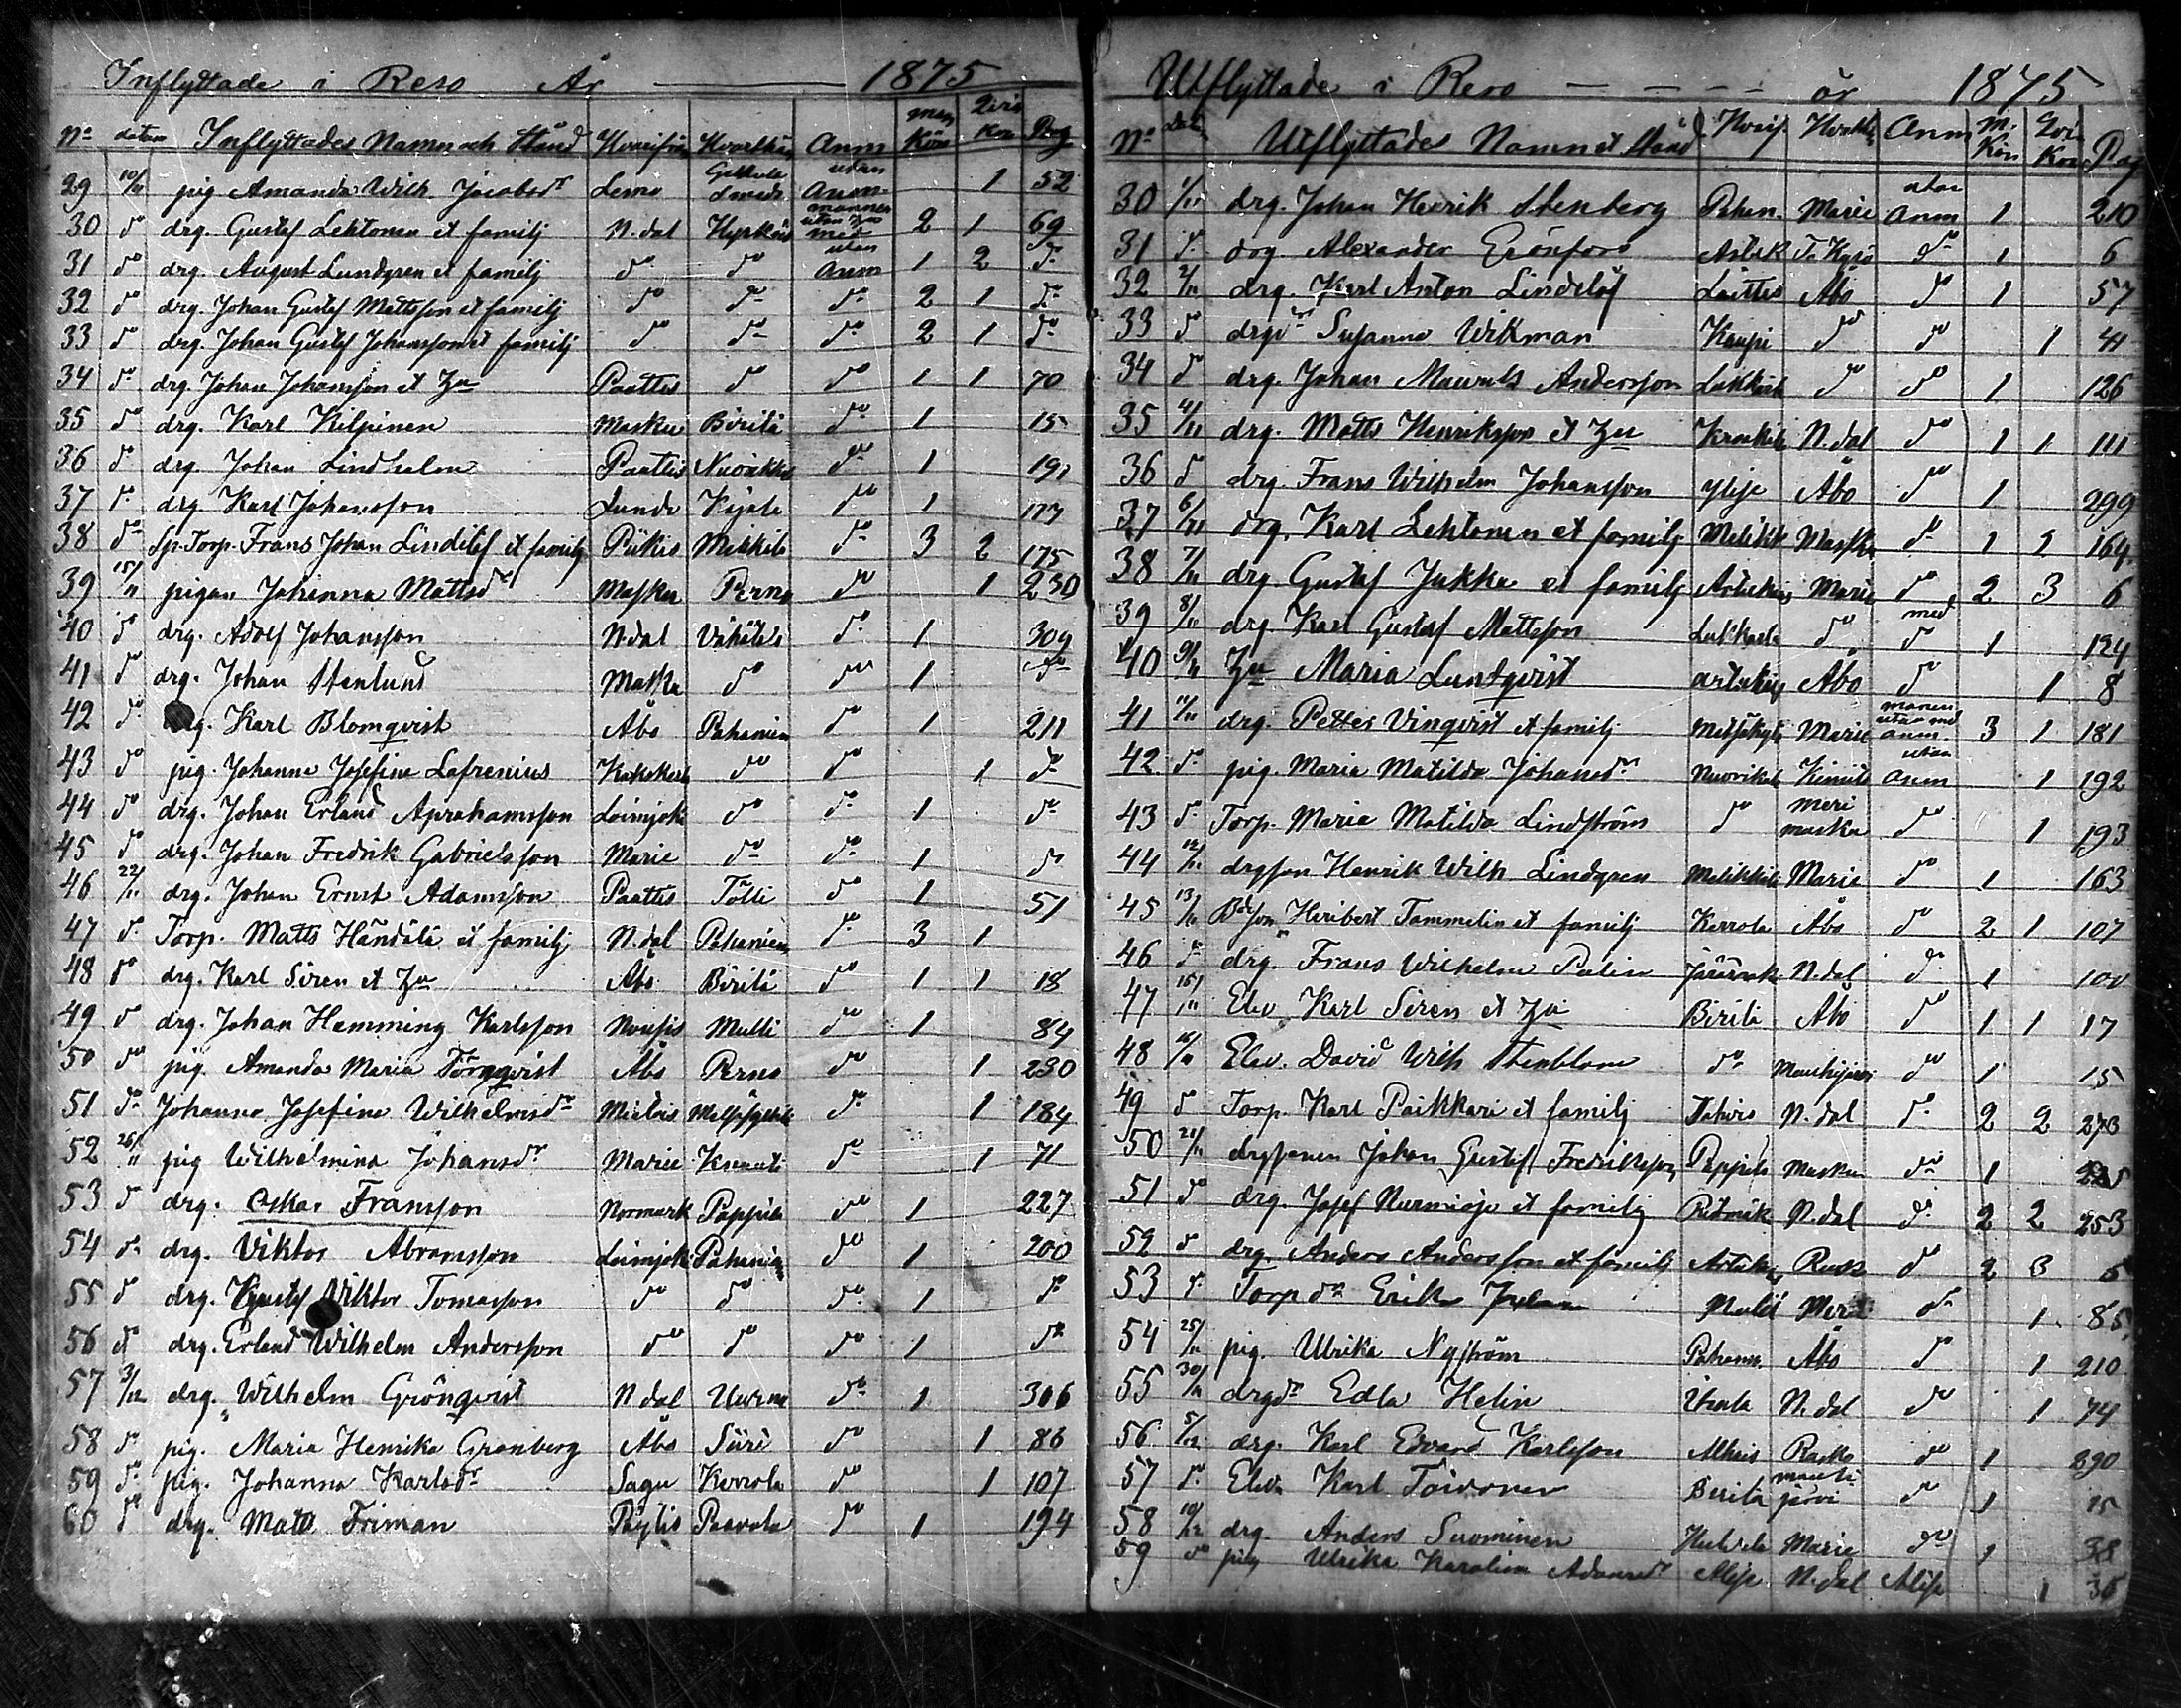 Inflyttade i Reso År 1875
No datum Inflyttades Namn och Stånd Hvarifrån Hvarthän Anm man Kön Qvin Kön Pag
29 10/11 pig Amanda Wilh. Jacobsdr Lemo utan Anm 1 52
30 do drg. Gustaf Lehtonen et familj N.dal 2 1 69
31 do drg. August Lundgren et familj do do utan Anm 1 2 do
32 do drg. Johan Gustaf Mattsson et familj do do do 2 1 do
33 do drg. Johan Gustaf Johansson et familj do do do 2 1 do
34 do drg. Johan Johansson et Zu Paattis do do 1 1 70
35 do drg. Karl Kilpinen Masku Birilä do 1 15
36 do drg. Johan Lindholm Paattis do 1 191
37 do drg Karl Johansson Lundo Kajala do 1 177
38 do Sp. Torp. Frans Johan Lindelöf et familj Piikis Mikkila do 3 2 175
39 15/11 pigan Johanna Mattsdr Masku Perno do 1 230
40 do drg. Adolf Johansson N.dal do 1 309
41 do drg. Johan Stenlund Masku do do 1 do
42 do drg. Karl Blomqvist Åbo Pahaniem do 1 211
43 do pig. Johanna Josefina Lafrenius Kakskerta do do 1 do
44 do drg. Johan Erland Aprahamsson Loimjoki do do 1 do
45 do drg. Johan Fredrik Gabrielsson Marie do do 1 do
46 22/11 drg. Johan Ernst Adamsson Paattis do 1 51
47 do Torp. Matts Händälä et familj N.dal Pahaniem do 3 1
48 do drg. Karl Siren et Zu Åbo Birilä do 1 1 18
49 do drg. Johan Hemming Karlsson Nousis Mulli do 1 84
50 do pig. Amanda Maria Törnqvist Åbo Perno do 1 230
51 do Johanna Josefina Wilhelmsdr Mietois do 1 184
52 26/11 pig Wilhelmina Johansdr Marie Knaati do 1 71
53 do drg. Oskar Fransson Normark Pappila do 1 227
54 do drg. Viktor Abramsson Loimjoki Pahaniem do 1 200
55 do drg. Gustaf Viktor Tomasson do do do 1 do
56 do drg. Erland Wilhelm Andersson do do do 1 do
57 3/12 drg. Wilhelm Grönqvist N dal do 1 306
58 do pig. Maria Henrika Granberg Åbo Siiri do 1 86
59 do pig. Johanna Karlsdr Sagu Korrola do 1 107
60 do drg. Matts Friman Pöytis Paavola do 1 194
Utflyttade i Reso år 1875
No Dat. Utflyttades Namn et Stånd Hvarif. Anm M. Kön Qvin Kön Pag
30 1/11 drg. Johan Henrik Stenberg Pahan. Marie utan Anm 1 210
31 do drg. Alexander Grönfors do 1 6
32 2/11 drg. Karl Anton Lindelöf Åbo do 1 57
33 do Susanna Wikman Kaupi do do 1 41
34 do drg. Johan Mauritz Andersson do do 1 126
35 4/11 drg. Matts Henriksson et Zu N.dal do 1 1 111
36 do drg. Frans Wilhelm Johansson Åbo do 1 299
37 6/11 drg. Karl Lehtonen et familj Masku do 1 164
38 7/11 drg. Gustaf Jukka et familj Marie do 2 3 6
39 8/11 drg. Karl Gustaf Mattsson do med do 1 124
40 9/11 Zu Maria Lundqvist Åbo do 1 8
41 11/11 drg. Petter Vinqvist et familj Marie 3 1 181
42 do pig. Maria Matilda Johansdr Kimito utan anm 1 192
43 do Torp. Maria Matilda Lindström do meri masku do 1 193
44 12/11 drgson Henrik Wilh Lindgren Marie do 1 163
45 13/11 Heribert Tammelin et familj Korrola Åbo do 2 1 107
46 do drg. Frans Wilhelm Palin N.dal do 1 100
47 15/11 Elev Karl Siren et Zu Birilä Åbo do 1 1 17
48 16/11 Elev. David Wilh Stenblom do Mouhijärvi do 1 15
49 do Torp. Karl Paikkari et familj Tahvio N.dal do 2 2 273
50 21/11 Johan Gustaf Fredriksson Pappila Masku do 1
51 do drg. Josef Nurmioja et familj N.dal do 2 2 253
52 do drg. Anders Andersson et familj Rusko do 2 3 5
53 do Torp dr do 1 85
54 25/11 pig. Ulrika Nyström Pahan. Åbo do 1 210
55 30/11 drgdr Edla Helin N.dal do 1 74
56 5/12 drg. Karl Edvard Karlsson Rusko do 1 390
57 do Elev. Karl Toivonen Birilä järvi do 1 15
58 10/12 drg. Anders Suominen Marie do 1 38
59 do pig Ulrika Karolina Adamsdr N.dal 1